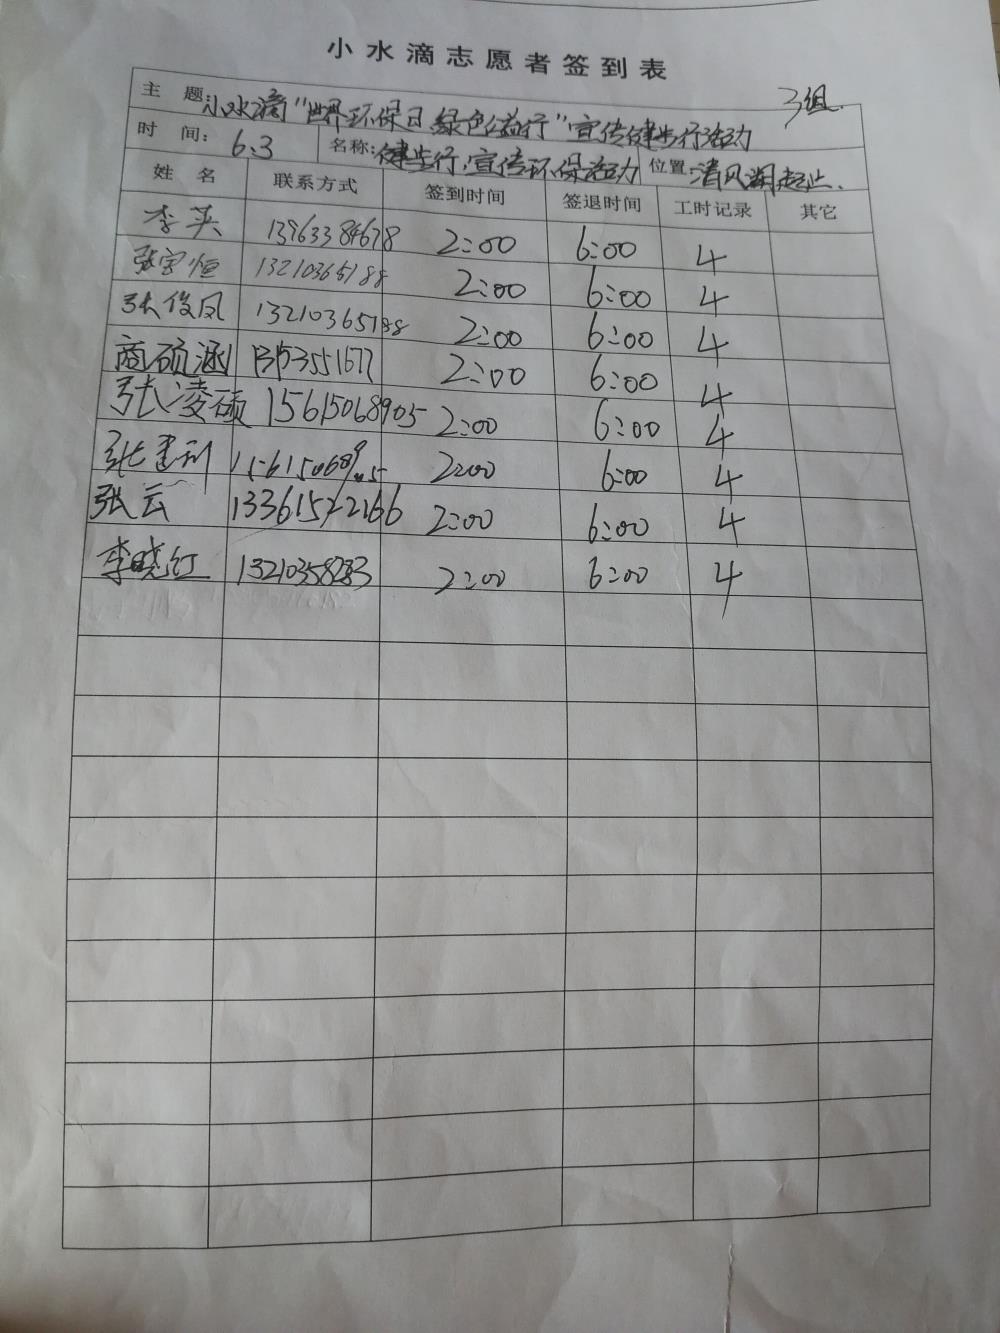 小水滴志愿者签到表
3组
主 题: 小水滴"世界环保日 绿色公益行"宣传健步行活动
时 间: 6.3 名称: 健步行,宣传环保活动 位置: 清风湖起止.
姓 名 联系方式 签到时间 签退时间 工时记录 其它
李英 13963384678 2:00 6:00 4
张宇恒 13210365188 2:00 6:00 4
张俊凤 13210365188 2:00 6:00 4
商硕涵 2:00 6:00 4
张凌硕 15615068905 2:00 6:00 4
张建利 15615068905 2:00 6:00 4
张云 13361522166 2:00 6:00 4
李晓红 2:00 6:00 4